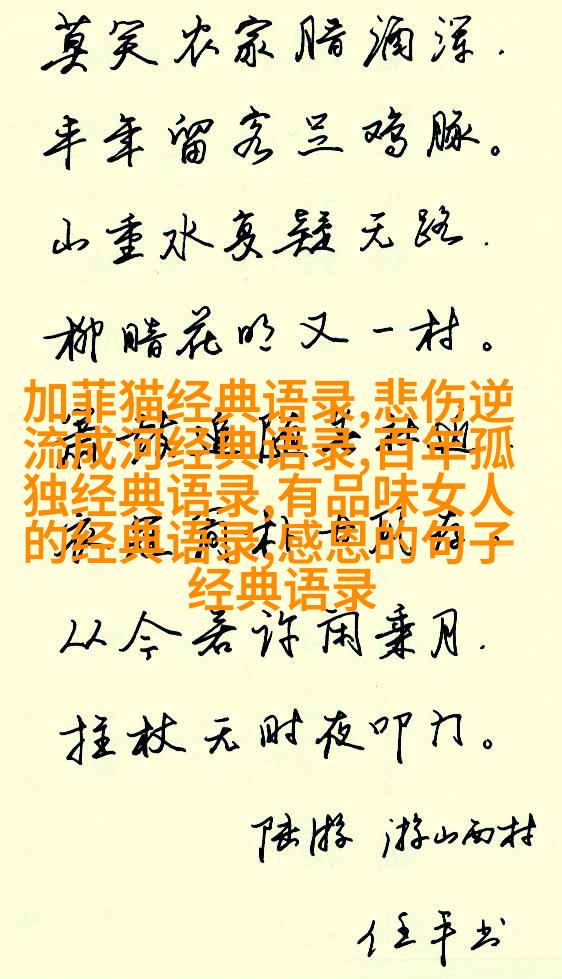 莫笑农家腊酒浑.
丰年留客足鸡豚。
山重水复疑无路.
柳暗花明又一村。
加菲猫经典语录,悲伤逆
流成河经典语录,百年孤
独经典语录,有品味女人
的经典语录,感恩的句子
经典语录
从今若许闲乘月.
拄杖无时夜叩门。
陆游 游山西村
任平书